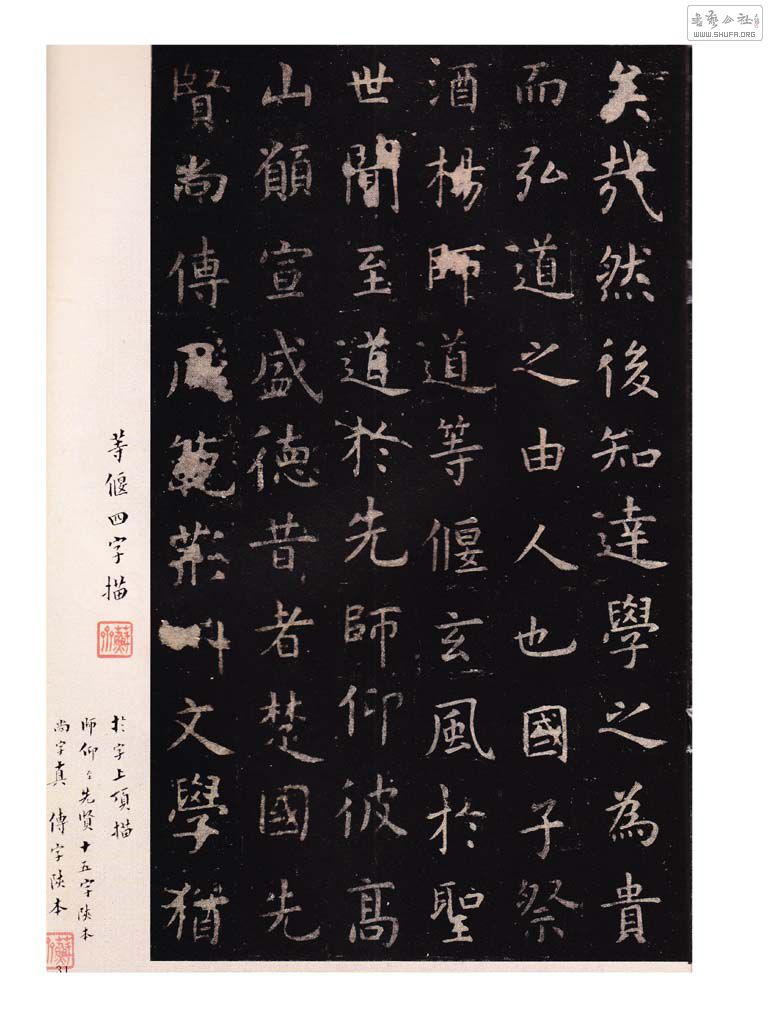 書藝公社
WWW.SHUFA.ORG
矣哉然後知達學之為貴
而弘道之由人也國子祭
酒楊師道等偃玄風於聖
世聞至道於先師仰彼高
山願宣盛德昔者楚國先
賢尚傳風範荊州文學猶
等偃四字描
於字上頂描
師仰至先賢十五字陝本
尚字真 傳字陝本
31